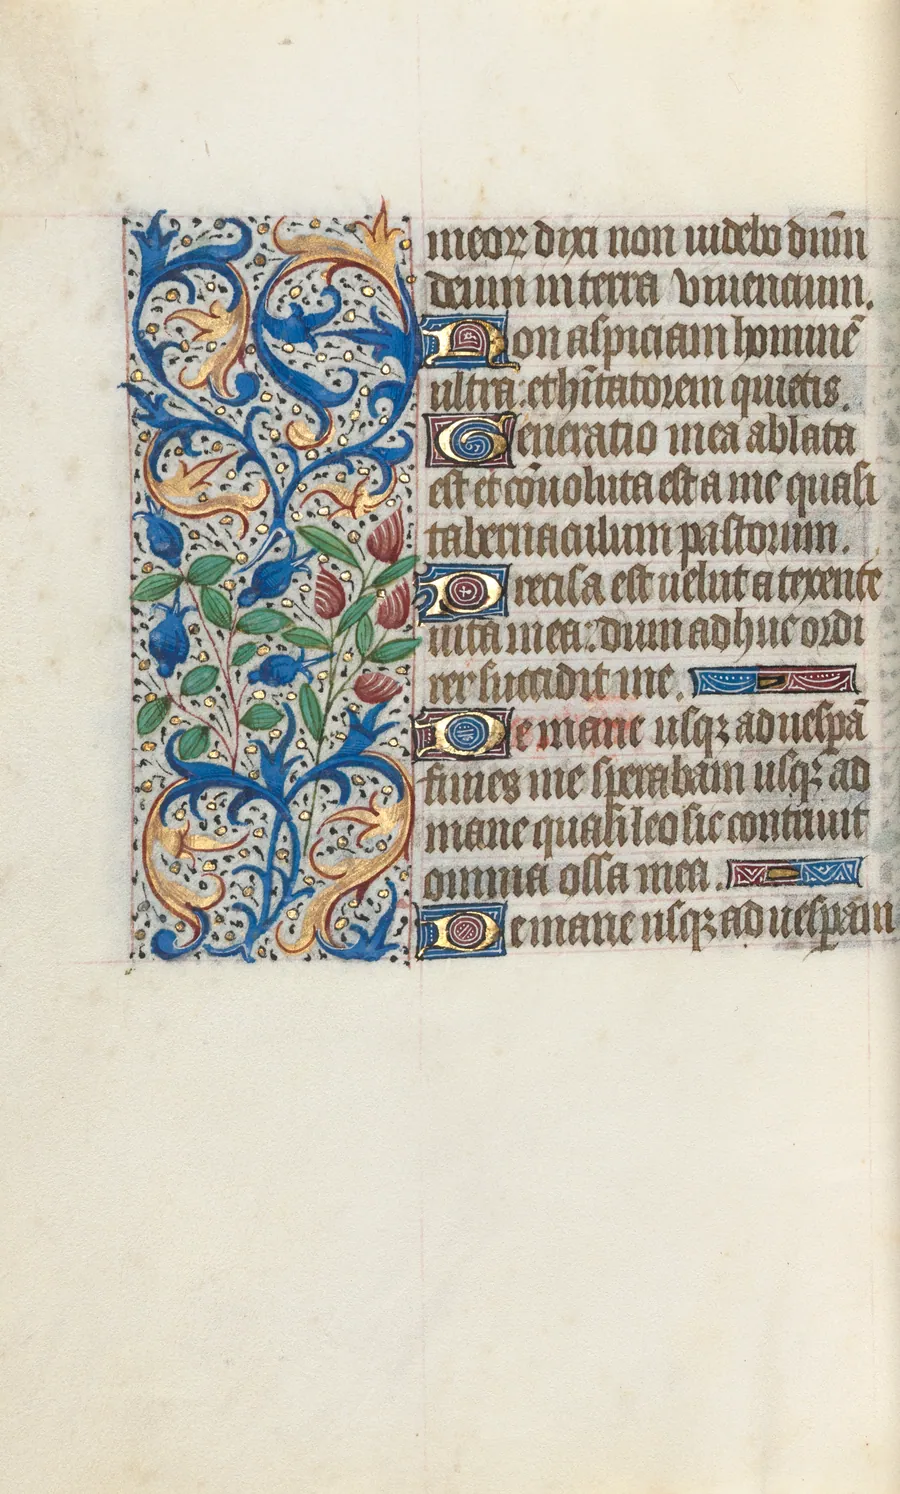 meor dixi non uidebo dn̄m
deum in terra viuencium.
Non aspiciam hominē
ultra: et hītatorem quietis.
Generatio mea ablata
est et cōuoluta est a me quasi
tabernaculum pastorum.
Precisa est uelut a texente
uita mea: dum adhuc ordi
rer succidit me.
De mane usqꝫ ad uesꝑā
finies me sperabam usqꝫ ad
mane quasi leo sic contriuit
omnia ossa mea.
De mane usqꝫ ad uesꝑam